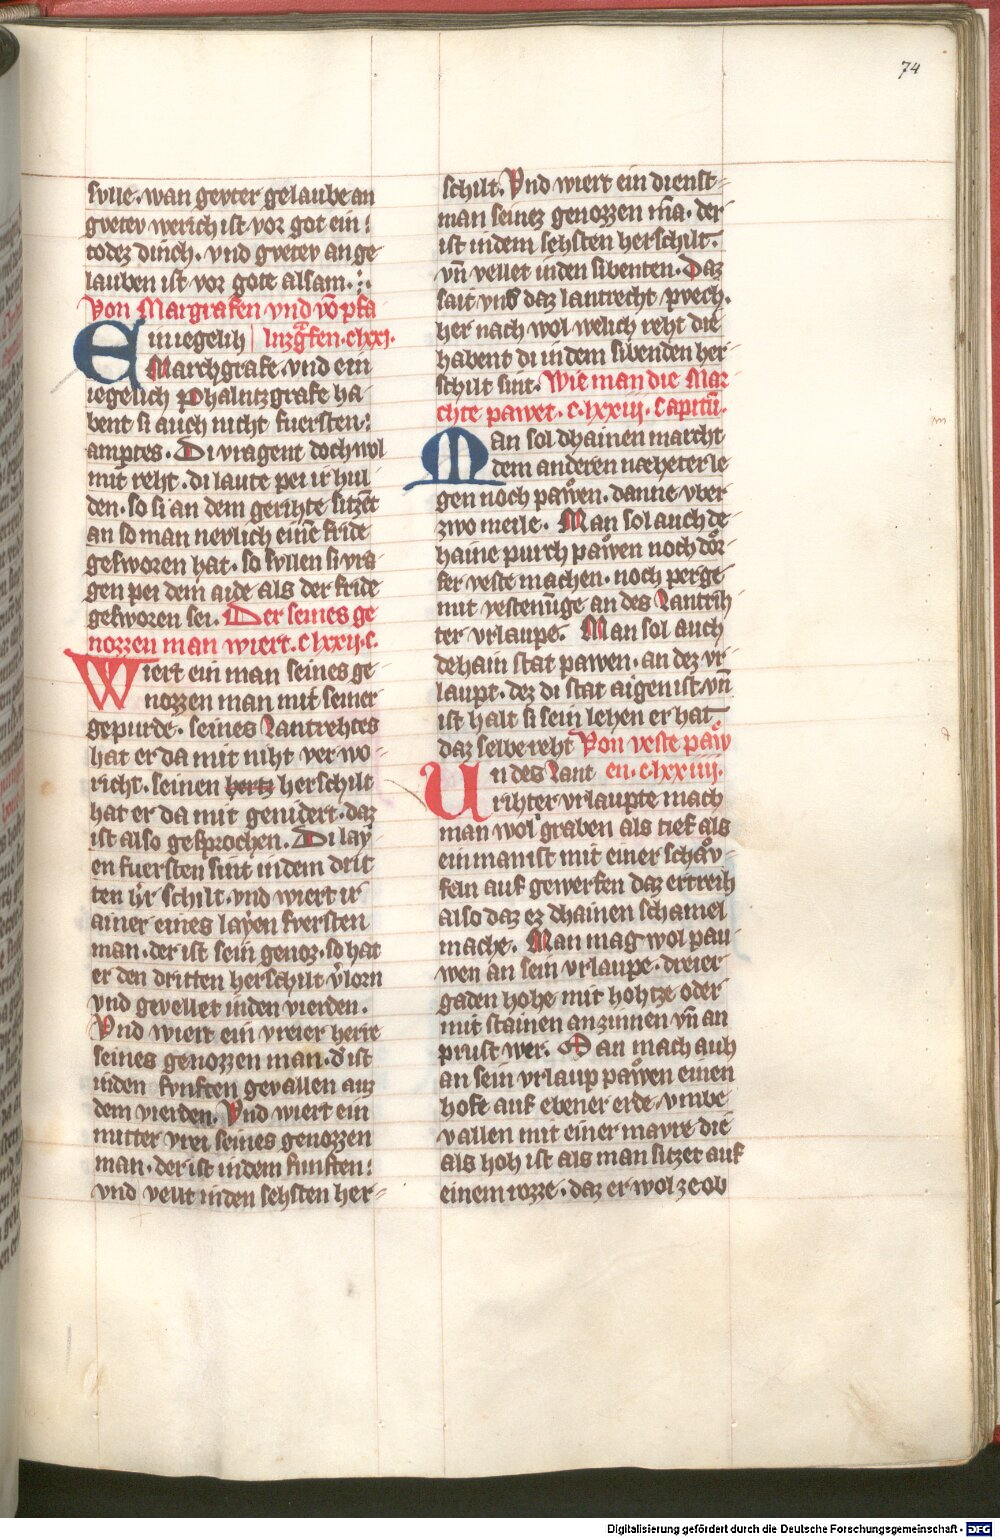 74
svlle. wan gevter gelaube an
gvetev werich ist vor got ein
todez dinch. vnd gvetev an ge
lauben ist vor gote alsam.
Von Margrafen vnd vo᷑ pfa
Ein iegelih lnzg͛fen. clxxi.
Marchgrafe. vnd ein
iegelich phalntzgrafe ha
bent si auch nicht fuersten
amptes. Di vragent doch wol
mit reht. di laute pei ir hul
den. so si an dem gerihte sitzēt
an so man nevlich einē fride
gesworen hat. so svllen si vra
gen pei dem aide als der fride
gesworen sei. Der seines ge
nozzen man wiert. clxxij. c.
Wiert ein man seines ge
nozzen man mit seiner
gepurde. seines Lantrehtes
hat er da mit niht ver wo
richt. seinen hertz herschilt
hat er da mit genidert. daz
ist also gesprochen. Di laÿ
en fuersten sint in dem drit
ten h͛r schilt. vnd wiert ir
ainer eines laÿen fversten
man. der ist sein genoz. so hat
er den dritten herschilt v͛lorn
vnd gevellet in den vierden.
Vnd wiert ein vreier herre
seines genozzen man. d͛ ist
in den fvnften gevallen auz
dem vierden. Vnd wiert ein
mitter vrei seines genozzen
man. der ist in dem funften
vnd vellt in den sehsten her-
schilt. Vnd wiert ein dienst-
man seinez genozzen m̄a. der
ist in dem sehsten herschilt.
vn̄ vellet in den sibenten. Daz
sait vns daz lantrecht pvech.
her nach wol welich reht die
habent di in dem sibenden her
schilt sint. Wie man die Mar
chte pawet. c. lxxiij. Capitū.
Man sol dhainen marcht
dem anderen næheter le
gen noch pawͦen. danne vber
zwo meile. Man sol auch de
haine purch pawͦen noch dor
fer veste machen. noch perge
mit vestenūge an des Lantrih
ter vrlaupe. Man sol auch
dehain stat pawen. an dez vr
laupt. dez di stat aigen ist vn̄
ist halt si sein lehen er hat
daz selbe reht Von veste paw
Un des Lant en. c. lxxiiij.
rihter vrlaupte mach
man wol graben als tief als
ein man ist mit einer schav
feln auf gewerfen daz ertreih
also daz ez dhainen schamel
mache. Man mag wol pau
wen an sein vrlaupe. dreier
gaden hohe mit hohtze oder
mit stainen an zinnen vn̄ an
prust wer. Man mach auh
an sein vrlaup pawͦen einen
hofe auf ebener erde. vmbe
vallen mit einer mavre die
als hoh ist als man sitzet auf
einem rozze. daz er wol ze ob
Digitalisierung gefördert durch die Deutsche Forschungsgemeinschaft - DFG